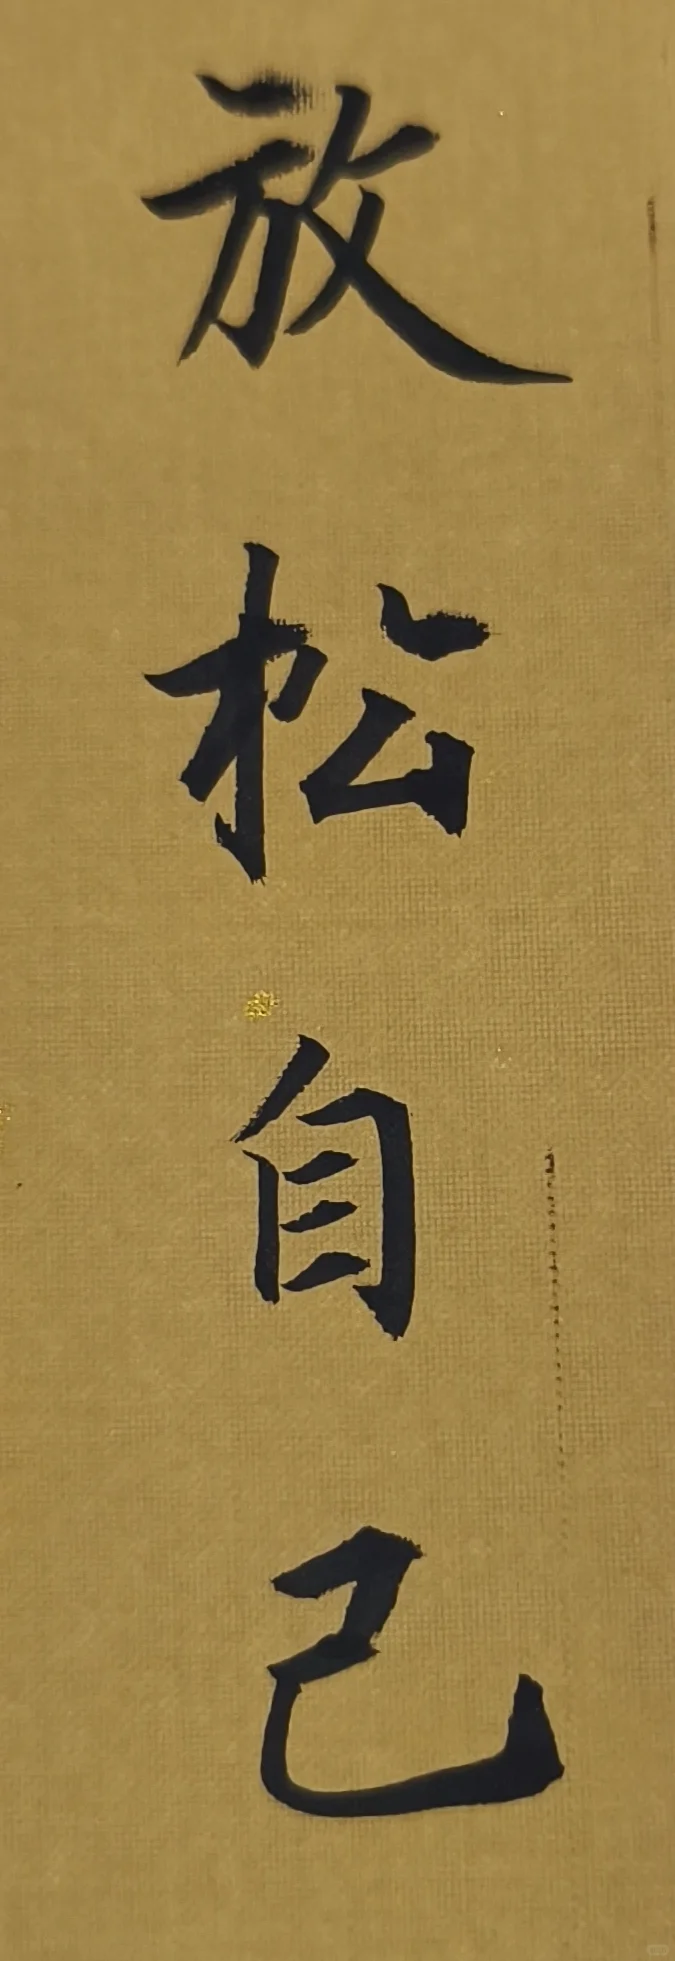 放松自己